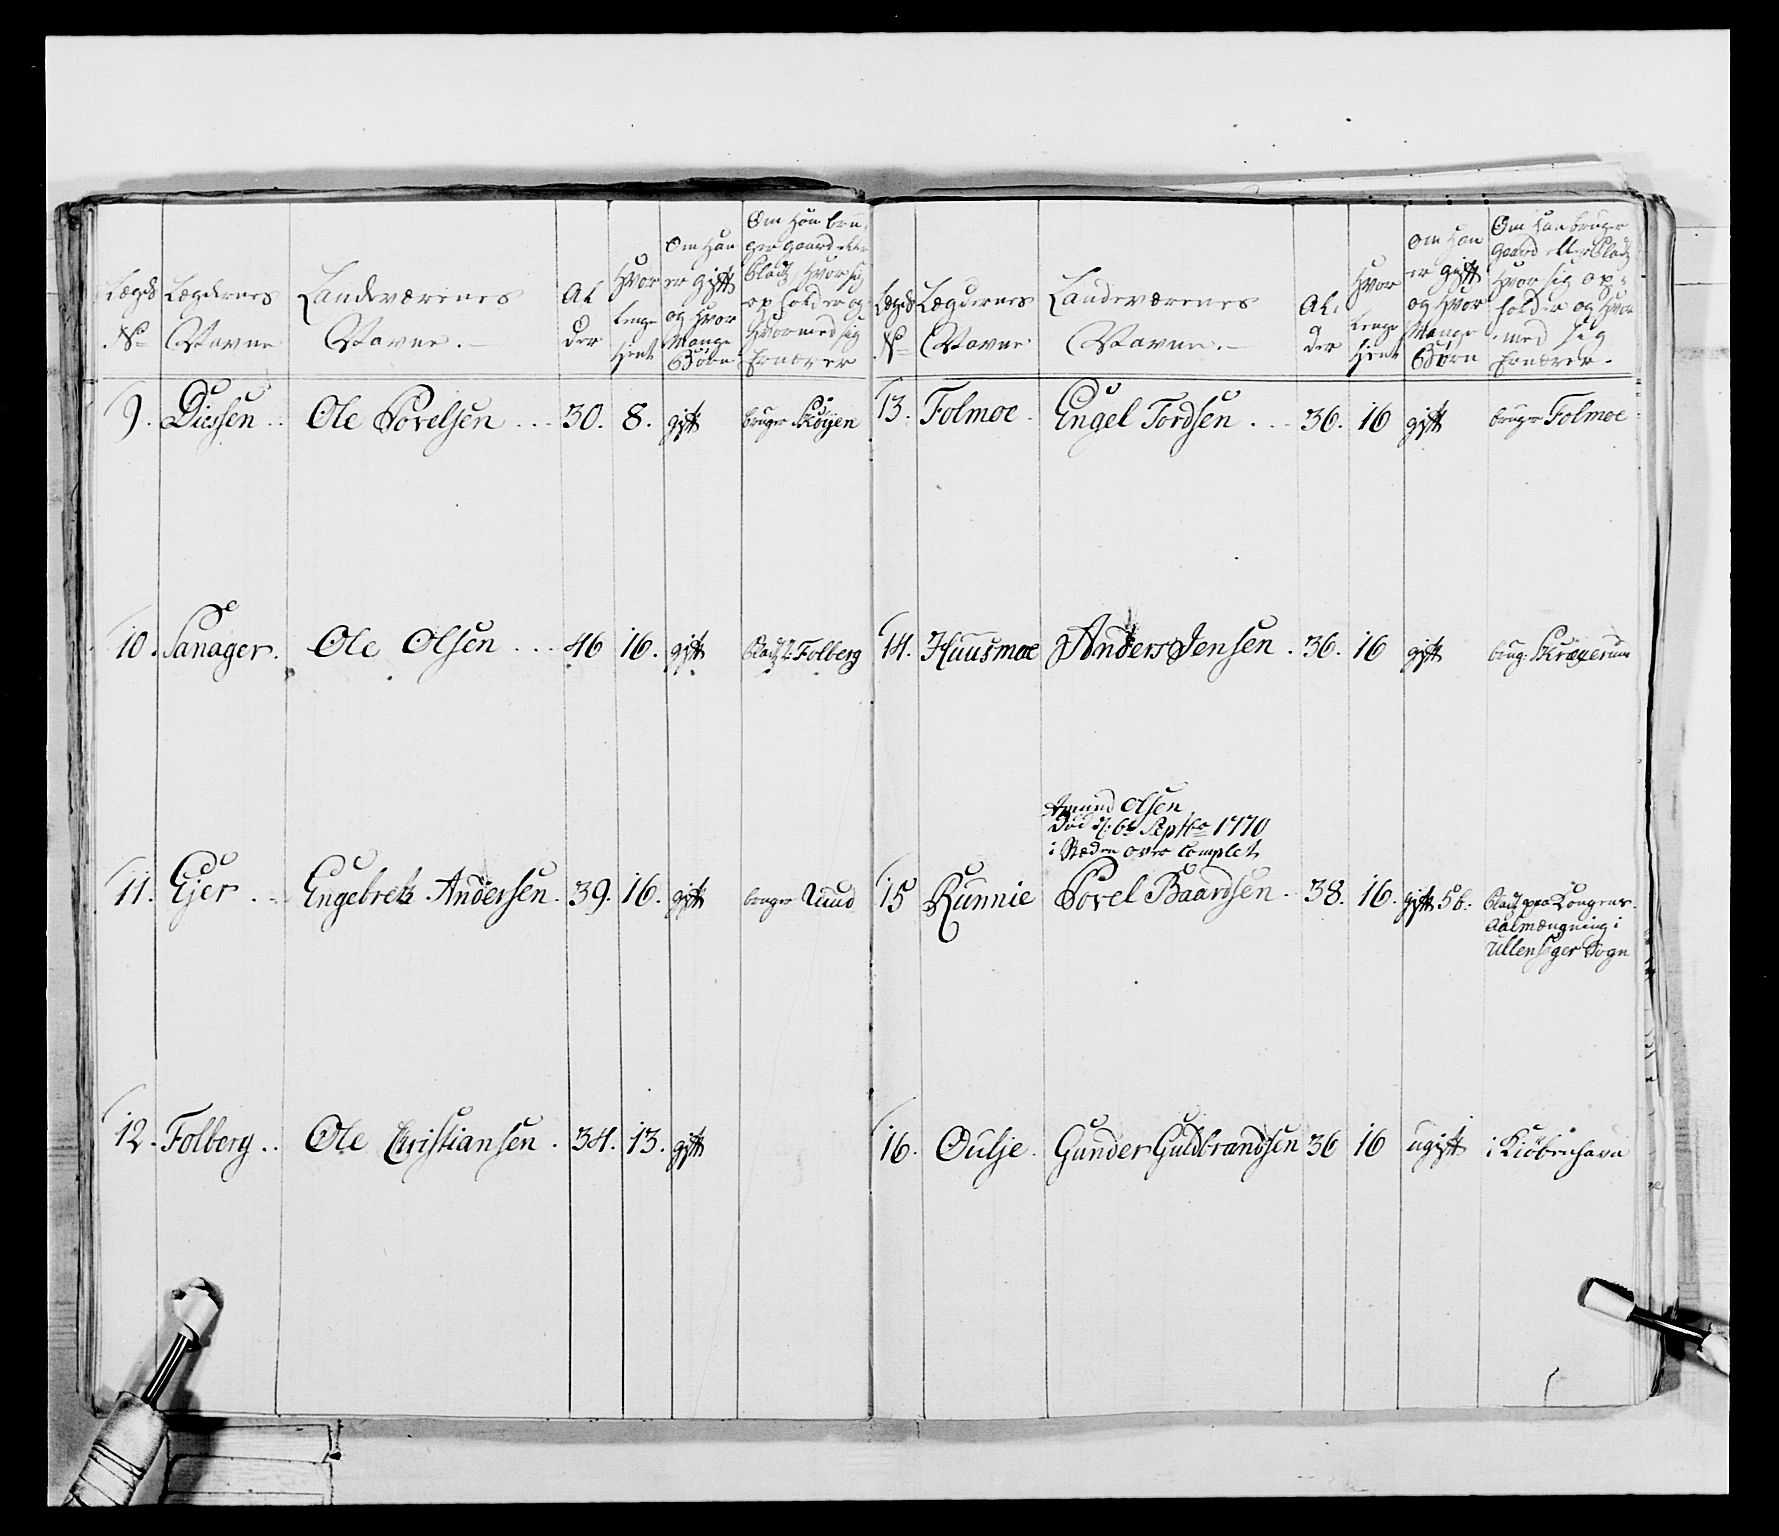 Lægds
No
Lægdernes
Navne
Landeværenes
Navne.
Al
der
Hvor
lenge
tient
Om Han
er gift
og Hvor
Mange
Børn
Om Han bru-
ger gaard eller
Pladz Hvor sig
op holder og
Hvormed sig
Ernærer
9. Diessen .. Ole Povelsen ... 30. 8. gift bruger Skøyen
10. Sanager. Ole Olsen ... 46 16. gift Pladz Folberg
11. Ejer .. Engebret Andersen. 39. 16. gift bruger Ruud
12. Folberg .. Ole Christiansen. 34. 13. gift
Lægds
No
Lægdernes
Navne
Landeværenes
Navne.
Al-
der
Hvor
lenge
tient
Om Han
er gift
og Hvor
Mange
Børn
Om Han bruger
Gaard eller Pladz
Hvor sig op-
holder og Hvor
med sig
Ernærer.
13. Folmoe. Engel Tordsen ... 36. 16 gift bruger Folmoe
14. Huusmoe Anders Jensen. 36. 16 gift brug: Skrøyerum
Amund Olsen
Død d: 6te Septbr 1770
i Stæden over Complet
15 Runnie Povel Baardsen. 38. 16. gift 5 b. Pladz paa Kongens
Aalmængning i
Ullensager Sogn
16. Øulje. Gunder Guldbrandsen 36 16 ugift i Kiøbenhavn